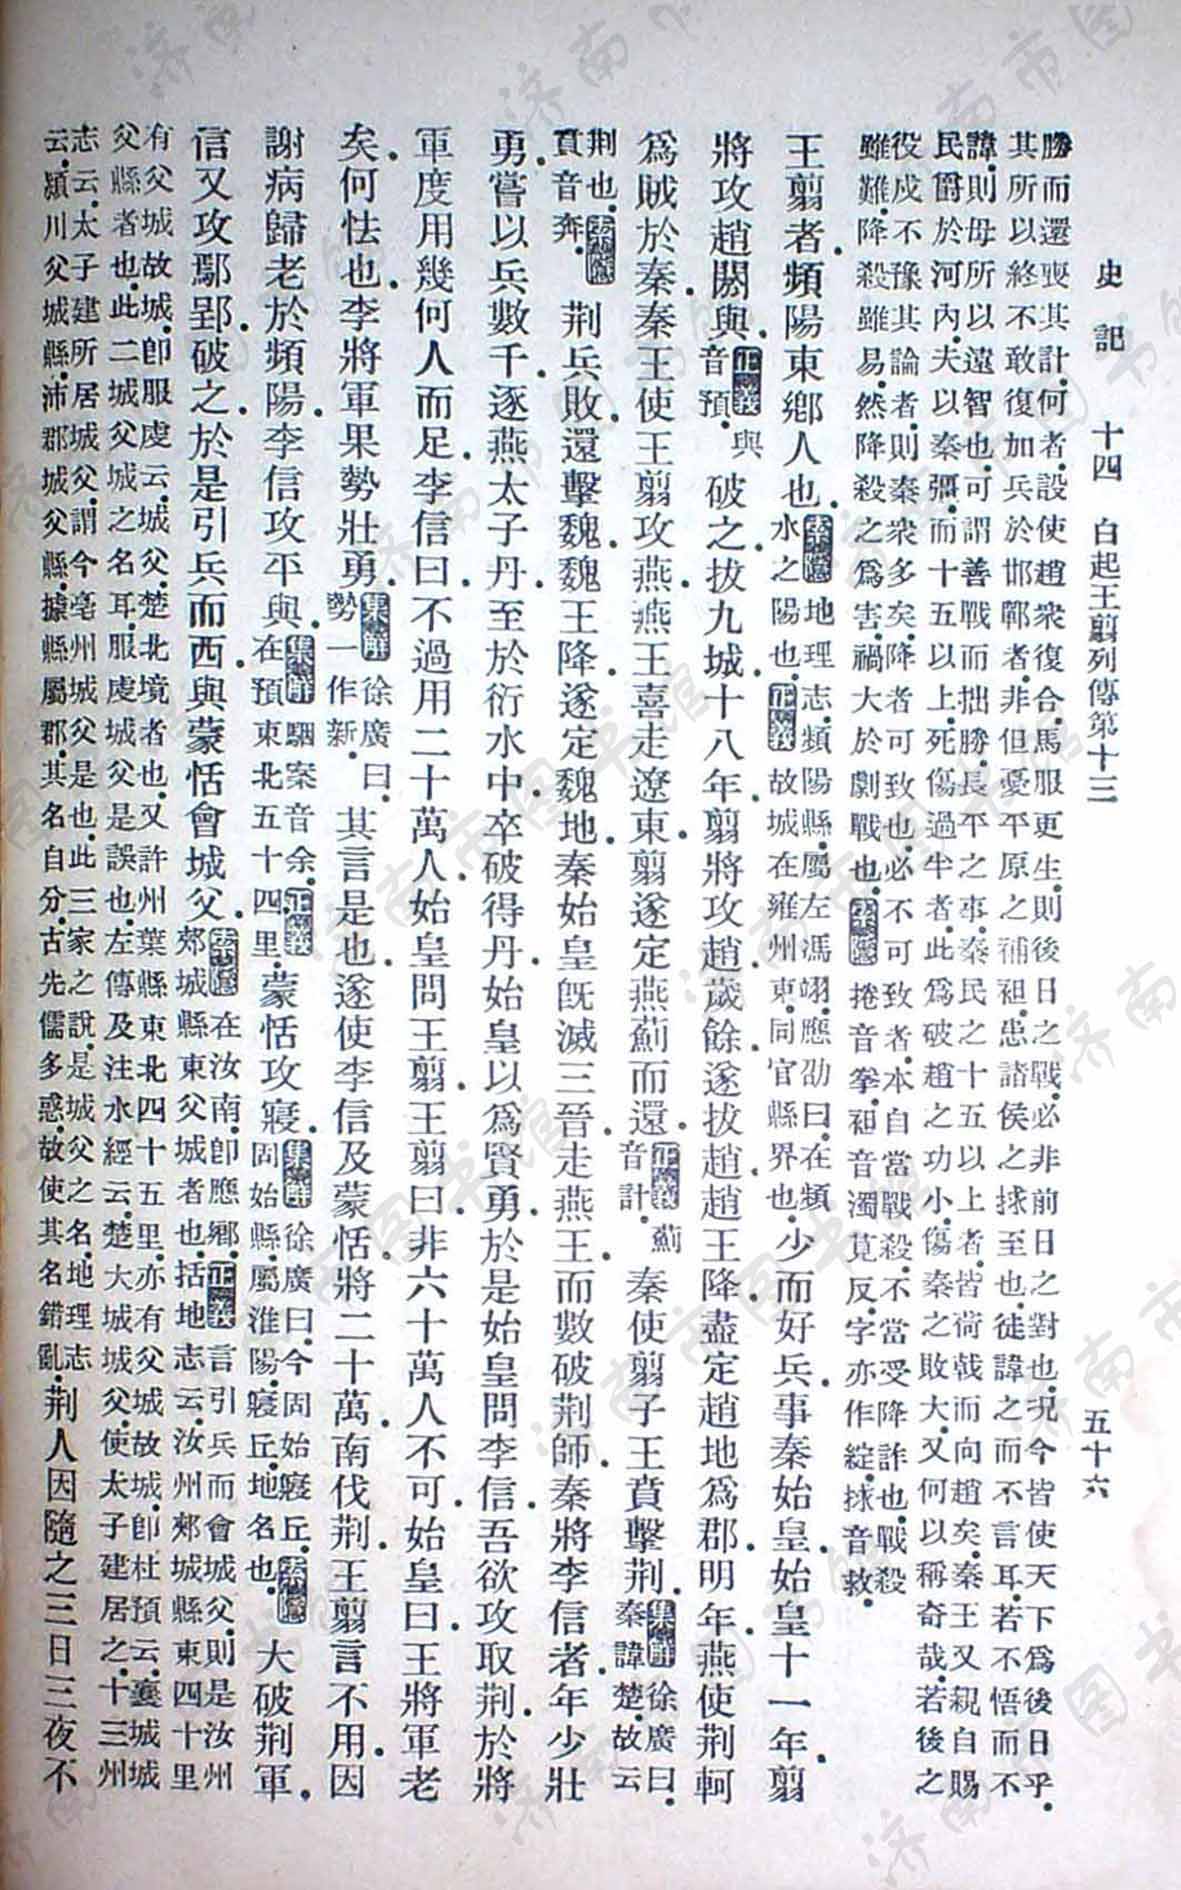 史記 十四 白起王翦列傳第十三 五十六
勝而還喪其計何者設使趙衆復合馬服更生則後日之戰必非前日之對也況今皆使天下爲後日乎
其所以終不敢復加兵於邯鄲者非但憂平原之補袒患諸侯之捄至也徒諱之而不言耳若不悟而不
諱則毋所以遠智也可謂善戰而拙勝長平之事秦民之十五以上者皆荷戟而向趙矣秦王又親自賜
民爵於河內夫以秦彊而十五以上死傷過半者此爲破趙之功小傷秦之敗大又何以稱奇哉若後之
役戍不豫其論者則秦衆多矣降者可致也必不可致者本自當戰殺不當受降詐也戰殺
雖難降殺雖易然降殺之爲害禍大於劇戰也索隱捲音拳袒音濁莧反字亦作綻捄音救
王翦者頻陽東鄉人也索隱地理志頻陽縣屬左馮翊應劭曰在頻
水之陽也正義故城在雍州東同官縣界也少而好兵事秦始皇始皇十一年翦
將攻趙閼與正義與
音預破之拔九城十八年翦將攻趙歲餘遂拔趙趙王降盡定趙地爲郡明年燕使荆軻
爲賊於秦秦王使王翦攻燕燕王喜走遼東翦遂定燕薊而還正義薊
音計秦使翦子王賁擊荆集解徐廣曰
秦諱楚故云
荆也索隱
賁音奔荆兵敗還擊魏魏王降遂定魏地秦始皇既滅三晉走燕王而數破荆師秦將李信者年少壯
勇嘗以兵數千逐燕太子丹至於衍水中卒破得丹始皇以爲賢勇於是始皇問李信吾欲攻取荆於將
軍度用幾何人而足李信曰不過用二十萬人始皇問王翦王翦曰非六十萬人不可始皇曰王將軍老
矣何怯也李將軍果勢壯勇集解徐廣曰
勢一作新其言是也遂使李信及蒙恬將二十萬南伐荆王翦言不用因
謝病歸老於頻陽李信攻平與集解駰案音余正義
在預東北五十四里蒙恬攻寢集解徐廣曰今固始寢丘索隱
固始縣屬淮陽寢丘地名也大破荆軍
信又攻鄢郢破之於是引兵而西與蒙恬會城父索隱在汝南即應鄉正義言引兵而會城父則是汝州
郟城縣東父城者也括地志云汝州郟城縣東四十里
有父城故城即服虔云城父楚北境者也又許州葉縣東北四十五里亦有父城故城即杜預云襄城城
父縣者也此二城父城之名耳服虔城父是誤也左傳及注水經云楚大城城父使太子建居之十三州
志云太子建所居城父謂今亳州城父是也此三家之說是城父之名地理志
云潁川父城縣沛郡城父縣據縣屬郡其名自分古先儒多惑故使其名錯亂荆人因隨之三日三夜不